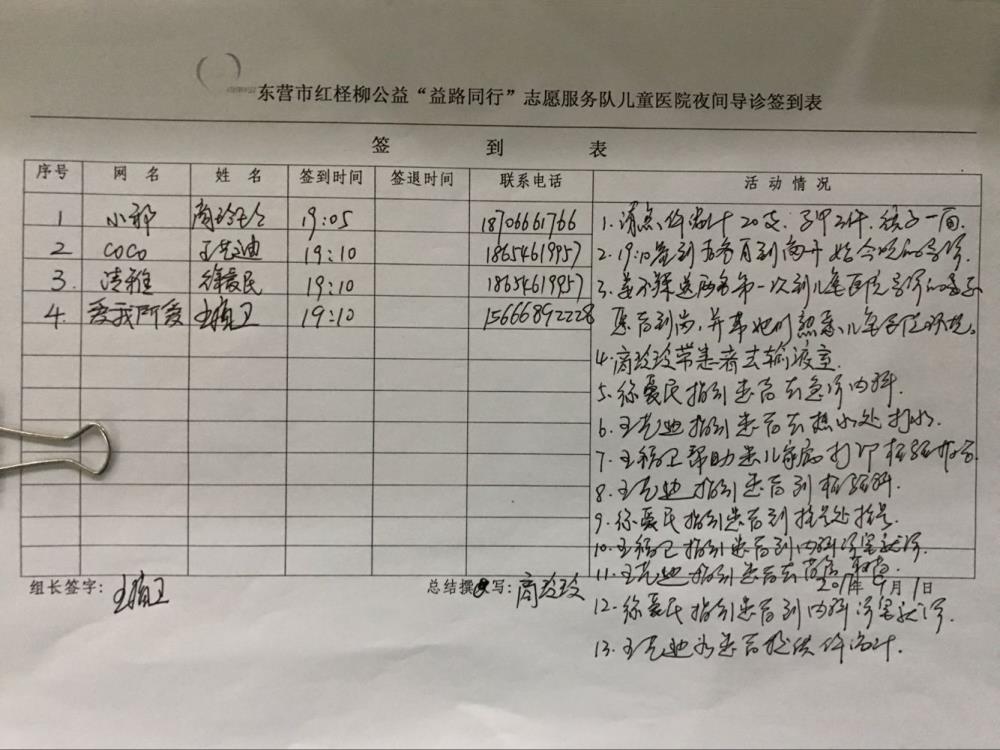 东营市红柽柳公益“益路同行”志愿服务队儿童医院夜间导诊签到表
签 到 表
序号 网 名 姓 名 签到时间 签退时间 联系电话 活 动 情 况
1 小郭 商玲玲 19:05 18706661766 1. 清点体温计20支、马甲三件、镜子一面.
2 COCO 王艺迪 19:10 18654619957 2. 19:10签到
3. 清雅 徐爱民 19:10 18654619957 3. 第一次到儿童医院导诊的
4. 爱我所爱 19:10 15666892228 患者到岗,并带她们熟悉儿童医院环境。
4. 商玲玲带患者去输液室.
5. 徐爱民指引患者去急诊内科.
6. 王艺迪指引患者去热水处打水.
7. 帮助患儿家属打印检验报告
8. 王艺迪指引患者到检验科.
9. 徐爱民指引患者到挂号处挂号.
10. 指引患者到内科诊室就诊.
11. 王艺迪指引患者去药房取药
组长签字: 总结撰写: 商玲玲 月1日
12. 徐爱民指引患者到内科诊室就诊.
13. 王艺迪为患者提供体温计.